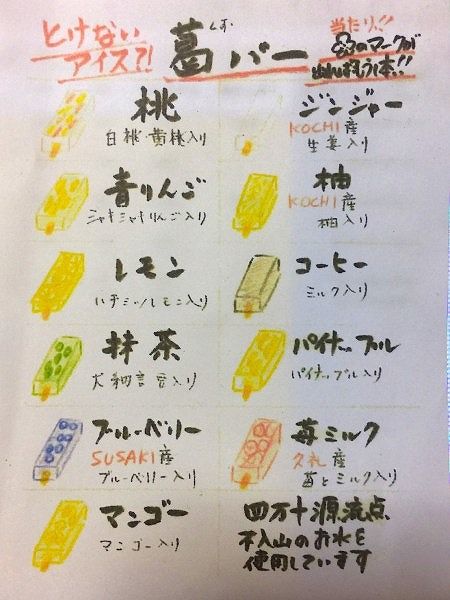 とけない
アイス?!
くず
葛バー
当たり!!
のマークが
出ればもう1本!!
桃
白桃・黄桃入り
ジンジャー
KOCHI産
生姜入り
青りんご
シャキシャキりんご入り
柚
KOCHI産
柚入り
レモン
ハチミツレモン入り
コーヒー
ミルク入り
抹茶
大納言 豆入り
パイナップル
パイナップル入り
ブルーベリー
SUSAKI産
ブルーベリー入り
苺ミルク
久礼産
苺とミルク入り
マンゴー
マンゴー入り
四万十源流点
不入山のお水を
使用しています